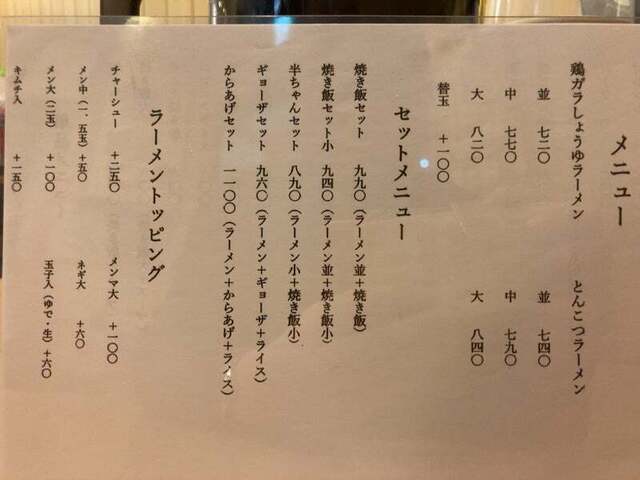 メニュー
鶏ガラしょうゆラーメン
並 七二〇
中 七七〇
大 八二〇
とんこつラーメン
並 七四〇
中 七九〇
大 八四〇
替玉 +一〇〇
セットメニュー
焼き飯セット 九九〇(ラーメン並+焼き飯)
焼き飯セット小 九四〇(ラーメン並+焼き飯小)
半ちゃんセット 八九〇(ラーメン小+焼き飯小)
ギョーザセット 九六〇(ラーメン+ギョーザ+ライス)
からあげセット 一一〇〇(ラーメン+からあげ+ライス)
ラーメントッピング
チャーシュー +二五〇
メン中(一、五玉)+五〇
メン大(二玉) +一〇〇
キムチ入 +一五〇
メンマ大 +一〇〇
ネギ大 +六〇
玉子入(ゆで・生)+六〇